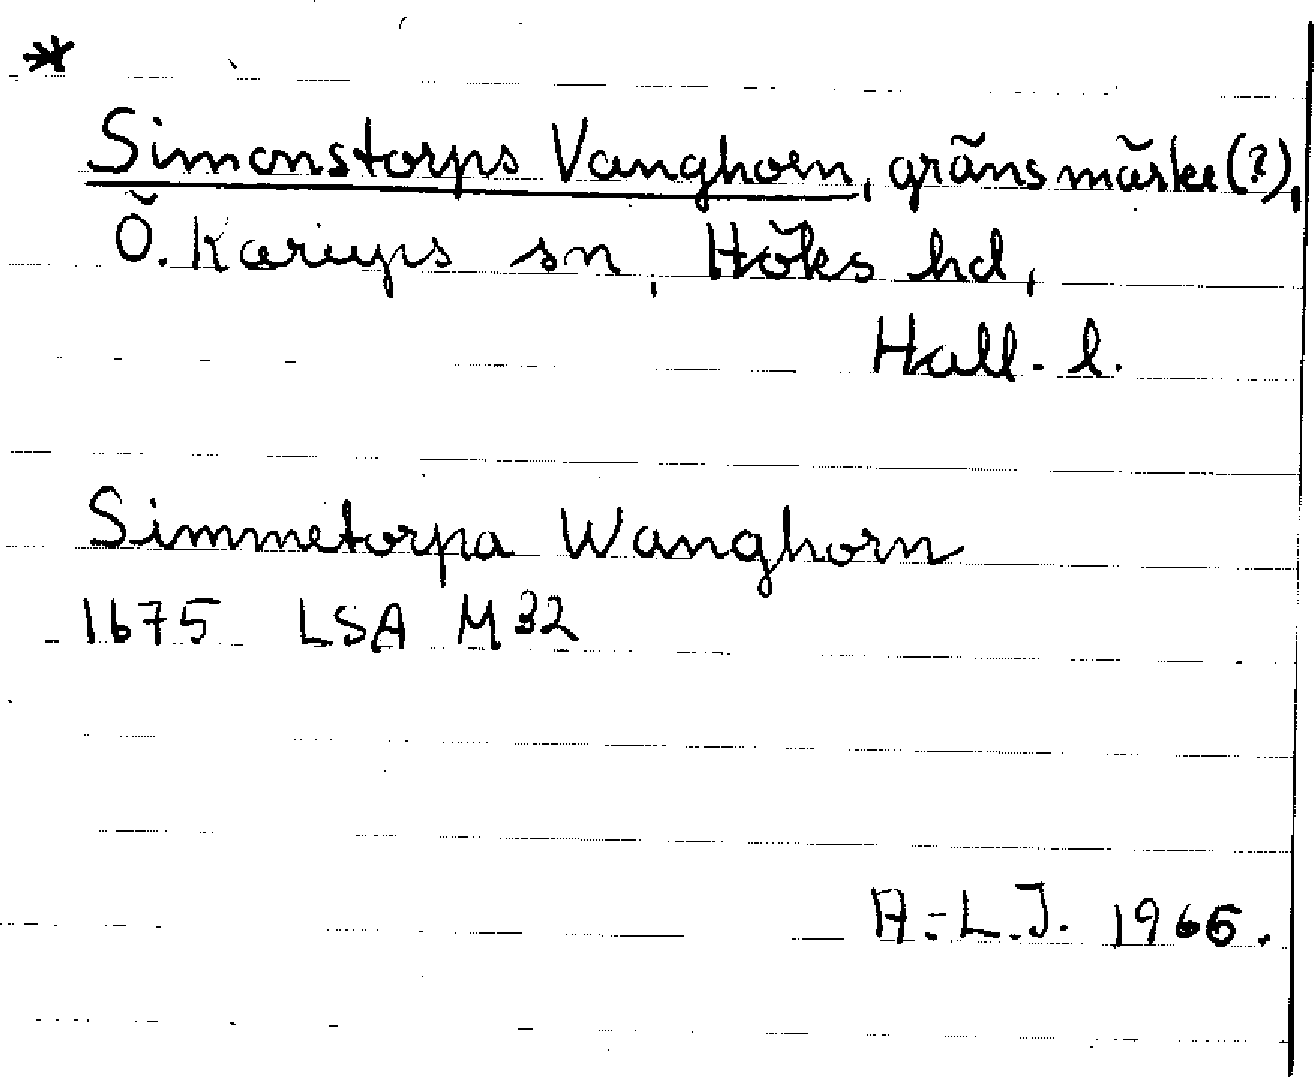 *
Simonstorps Vanghorn, gränsmärke(?),
Ö. Karups sn, Höks hd,
Hall. l.
Simmetorpa Wanghorn
1675 LSA M32
A.-L.J. 1966.